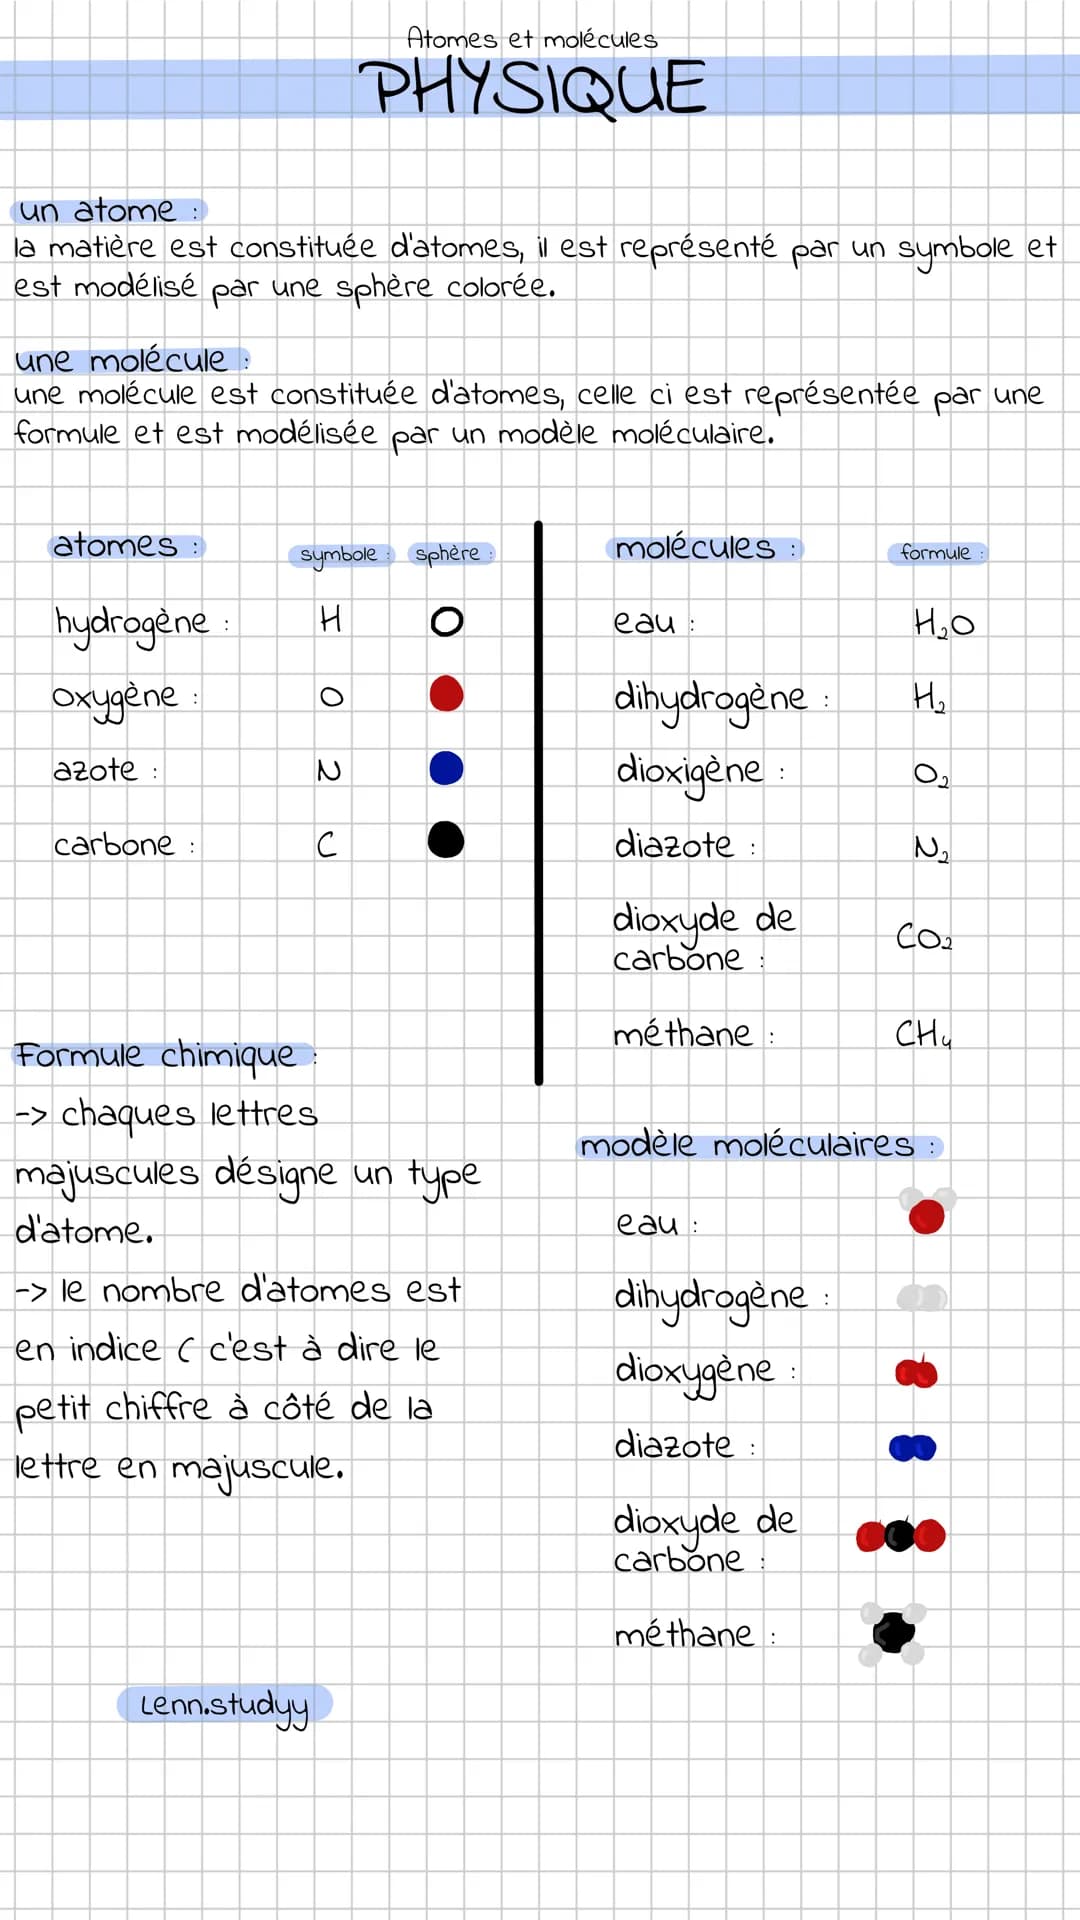 Atomes et molécules
PHYSIQUE
un atome :
la matière est constituée d'atomes, il est représenté par un symbole et
est modélisé par une sphère colorée.
une molécule :
une molécule est constituée d'atomes, celle ci est représentée par une
formule et est modélisée par un modèle moléculaire.
atomes : symbole : sphère :
hydrogène : H
oxygène : O
azote : N
carbone : C
molécules : formule :
eau : H₂O
dihydrogène : H₂
dioxigène : O₂
diazote : N₂
dioxyde de
carbone : CO₂
méthane : CH₄
Formule chimique :
-> chaques lettres
majuscules désigne un type
d'atome.
-> le nombre d'atomes est
en indice ( c'est à dire le
petit chiffre à côté de la
lettre en majuscule.
modèle moléculaires :
eau :
dihydrogène :
dioxygène :
diazote :
dioxyde de
carbone :
méthane :
Lenn.studyy